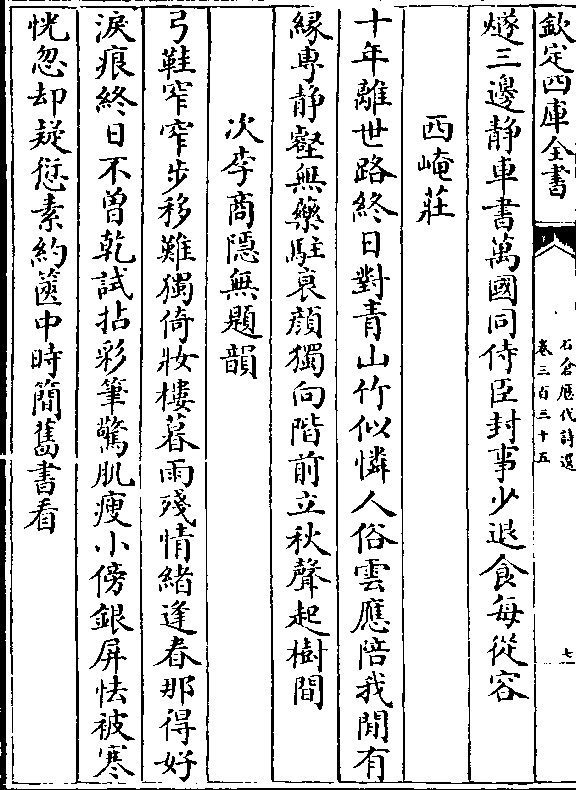 欽定四庫全書
石倉歷代詩選
卷三百三十五
七
燧三邊静車書萬國同侍臣封事少退食每從容
西崦莊
十年離世路終日對青山竹似憐人俗雲應陪我閒有
緣専静壑無藥駐衰顔獨向階前立秋聲起樹間
次李商隱無題韻
弓鞋窄窄步移難獨倚妝樓暮雨殘情緒逢春那得好
淚痕終日不曽乾試拈彩筆驚肌瘦小傍銀屏怯被寒
恍忽却疑愆素約篋中時簡舊書看